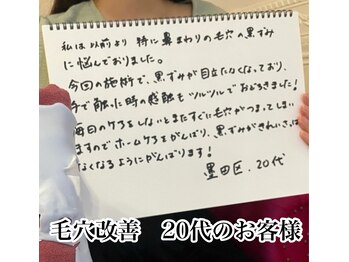 私は以前より 特に鼻まわりの毛穴の黒ずみ
に悩んでおりました。
今回の施術で、黒ずみが目立たなくなっており、
手で触った時の感触もツルツルでおどろきました!
毎日のケアをしないとまたすぐに毛穴がつまってしまい
ますのでホームケアをがんばり、黒ずみがきれいさっぱ
なくなるようにがんばります!
墨田区. 20代
毛穴改善 20代のお客様